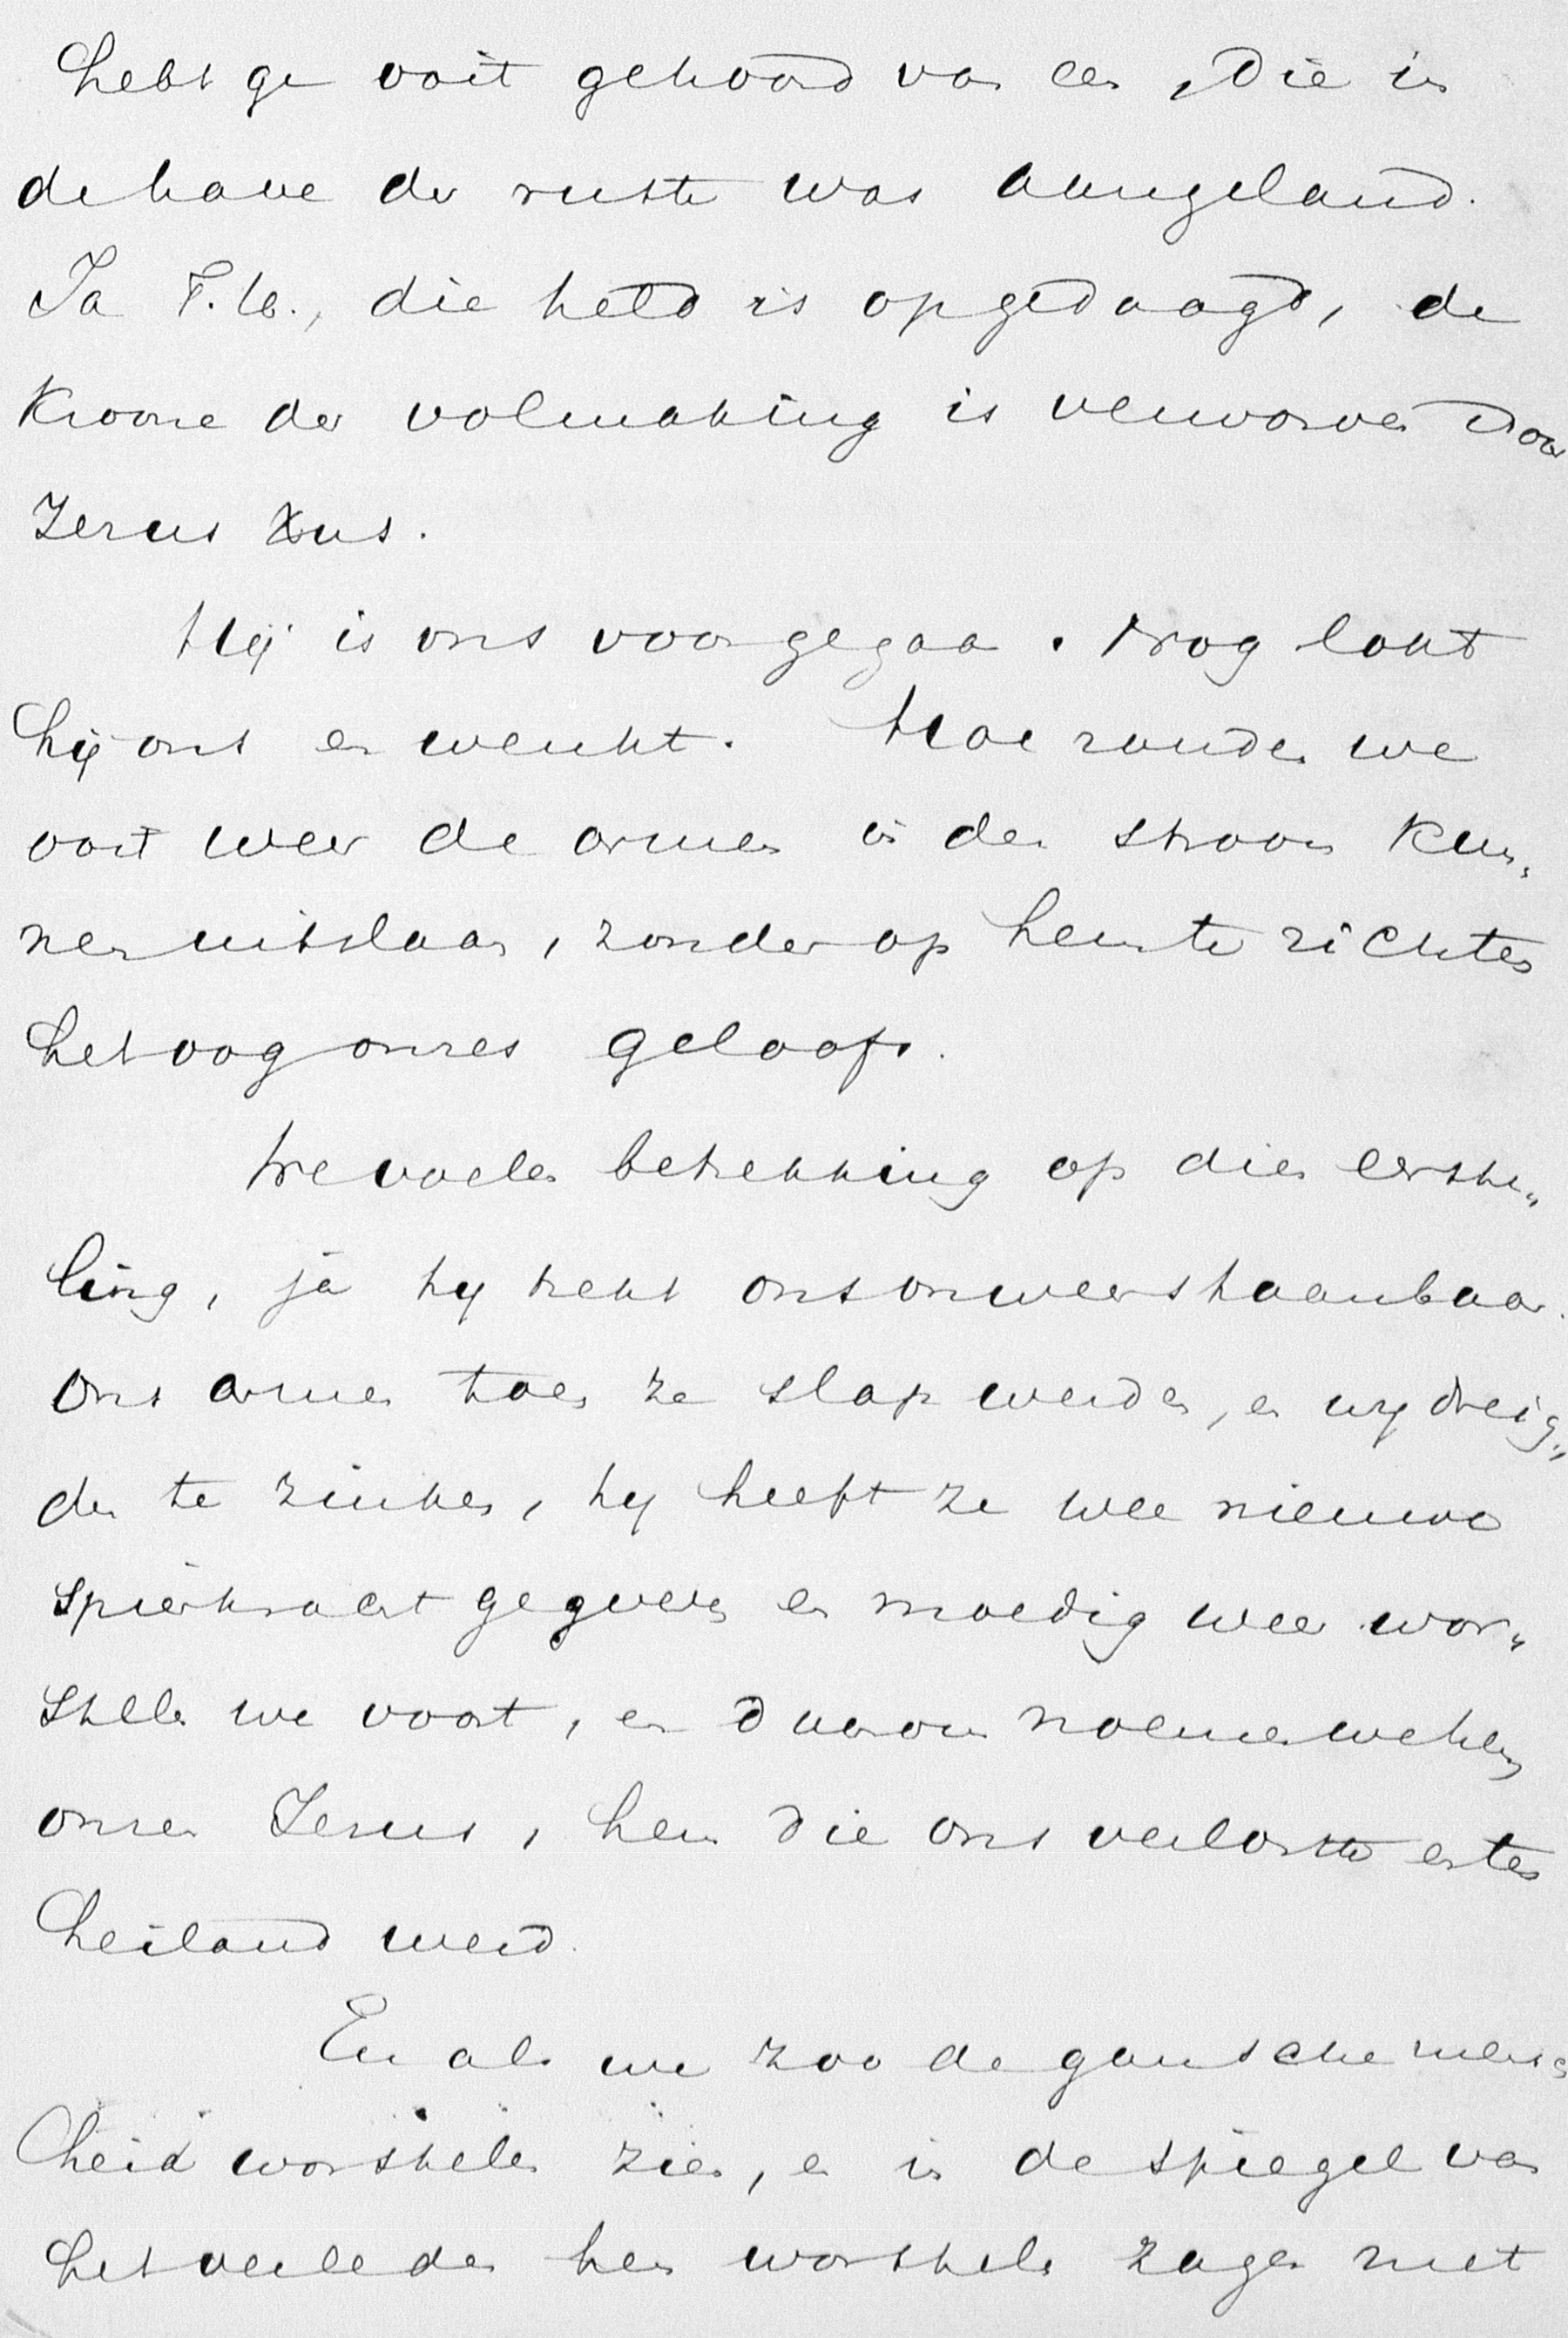 hebt ge ooit gehoord van een, die in
de have der ruste was aangeland.
Ja T. H., die held is opgedaagd, de
kroone der volmaking is verworven door
Jezus Xus.
Hij is ons voorgegaan. Nog lokt
hij ons en wenkt. Hoe zouden we
ooit weer de armen in den stroom kun„
nen uitslaan, zonder op hem te richten
het oog onzes geloofs.
We voelen betrekking op dien eerste„
ling, ja hy trekt ons onweerstaanbaar.
Ons armen toen ze slap werden, en wy dreig„
den te zinken, hy heeft ze weer nieuwe
spierkracht gegeven en moedig weer wor„
stelen we voort, en daarom noemen we hem
onzen Jezus, hem die ons verloste en ten
heiland werd.
En als we zoo de gansche mensch
heid worstelen zien, en in de spiegel van
het verleden hen worstelen zagen met